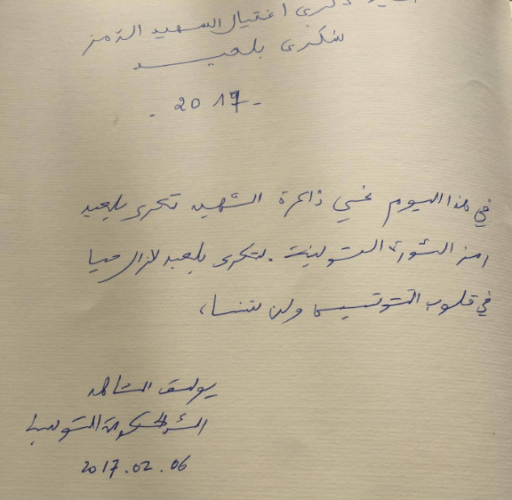 ذكرى اغتيال الشهيد الرمز
شكري بلعيد
- 2017 -
في هذا اليوم نحيي ذاكرة الشهيد شكري بلعيد
رمز الثورة التونسية. شكري بلعيد لازال حيا
في قلوب التونسيين ولن ننساه
يوسف الشاهد
الحكومة التونسية
2017.02.06